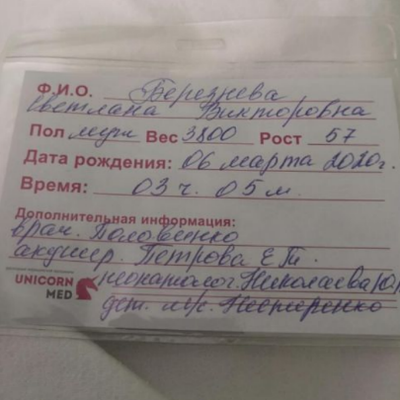 Ф.И.О. Березнева
Светлана Викторовна
Пол муж Вес 3800 Рост 57
Дата рождения: 06 марта 2020г.
Время: 03 ч. 05 м.
Дополнительная информация:
врач. Половенко
акушер. Петрова Е.Т.
неонатолог. Николаева Ю
дет. м/с. Нестеренко
UNICORN
MED